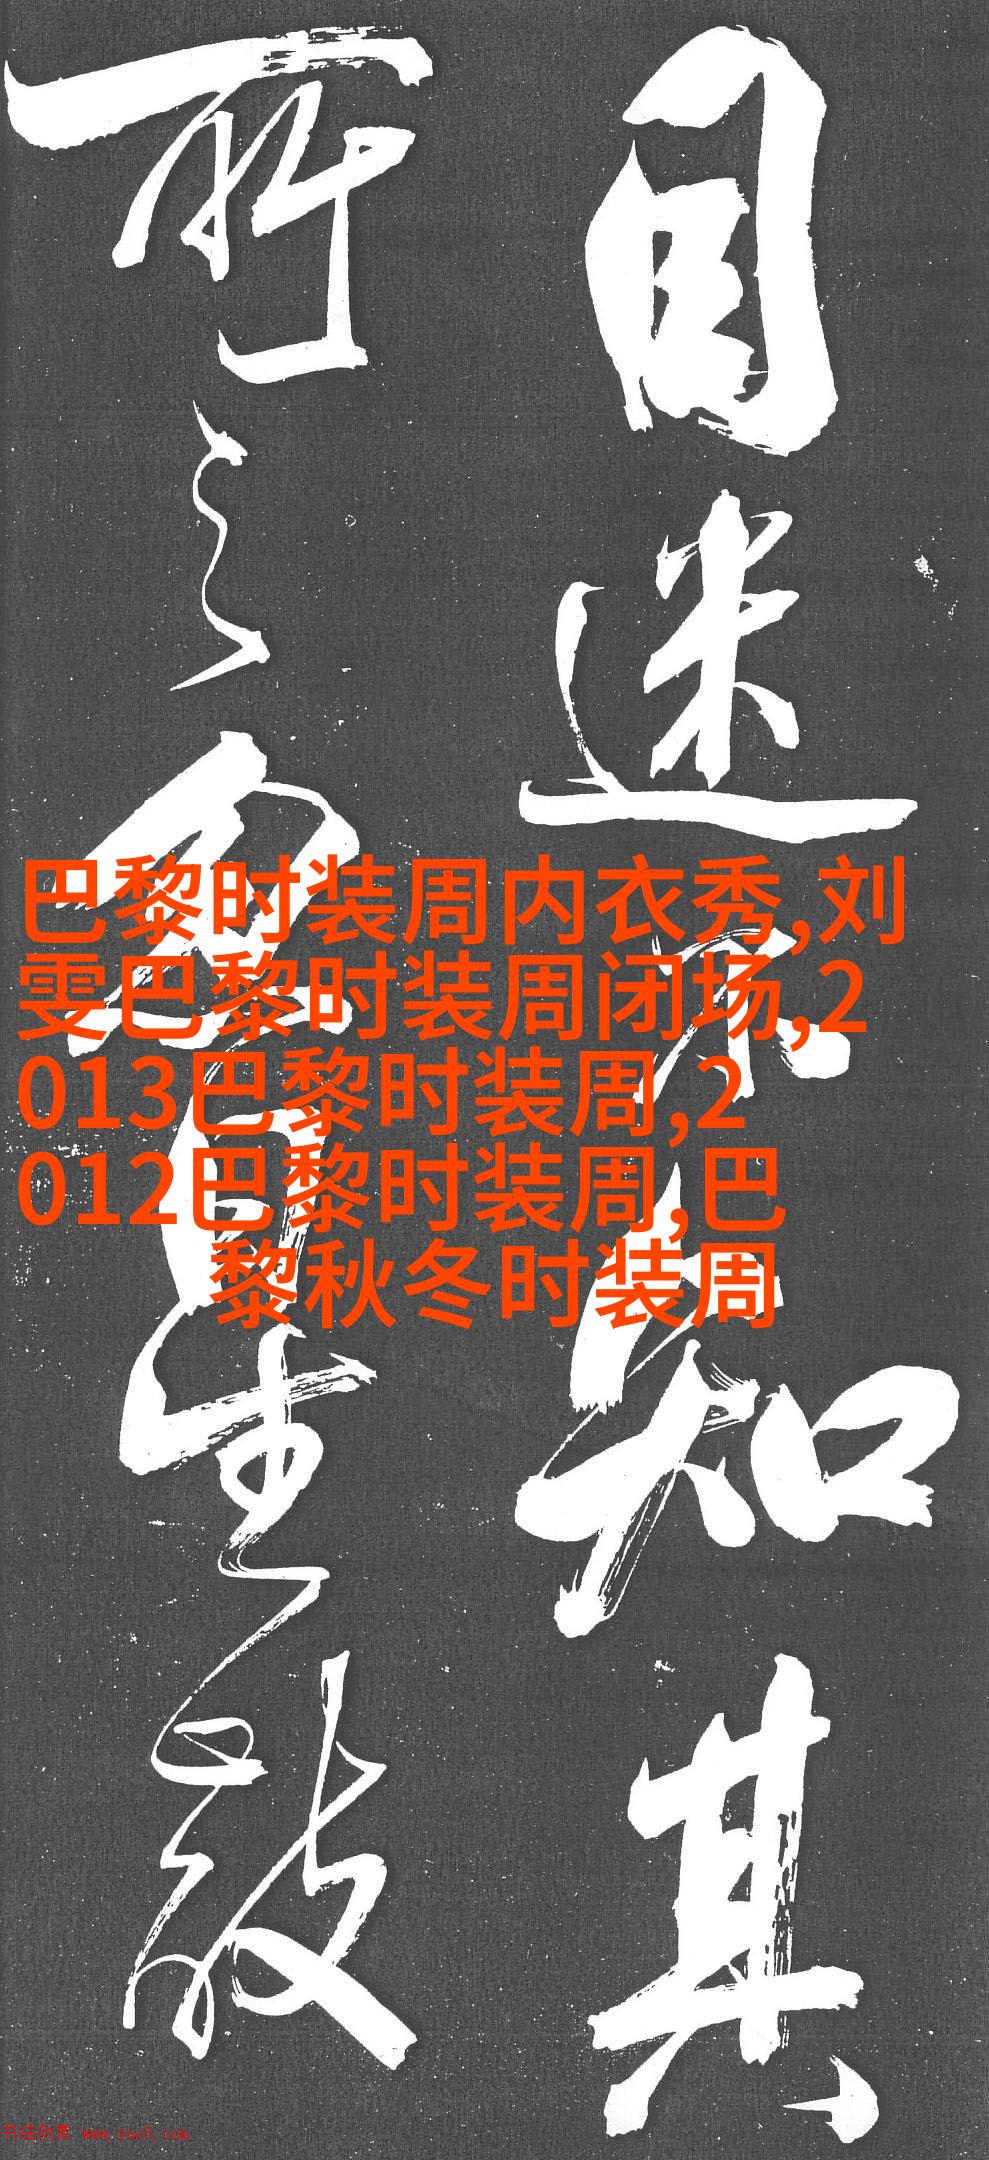 目迷不知其
所之生
巴黎时装周内衣秀,刘
雯巴黎时装周闭场,2
013巴黎时装周,2
012巴黎时装周,巴
黎秋冬时装周
书法欣赏 www.yac8.com